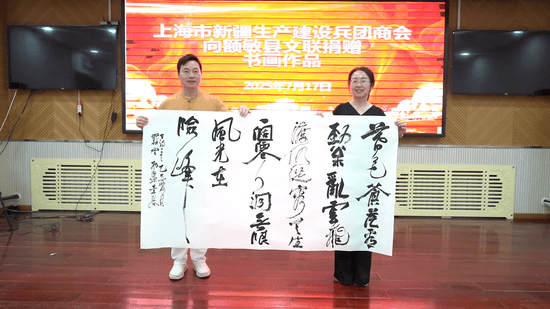 上海市新疆生产建设兵团商会
向额敏县文联捐赠
书画作品
2025年7月17日
暮色蒼茫看
勁松亂雲飛
渡仍從容天生
一個仙人洞無限
風光在
險峰